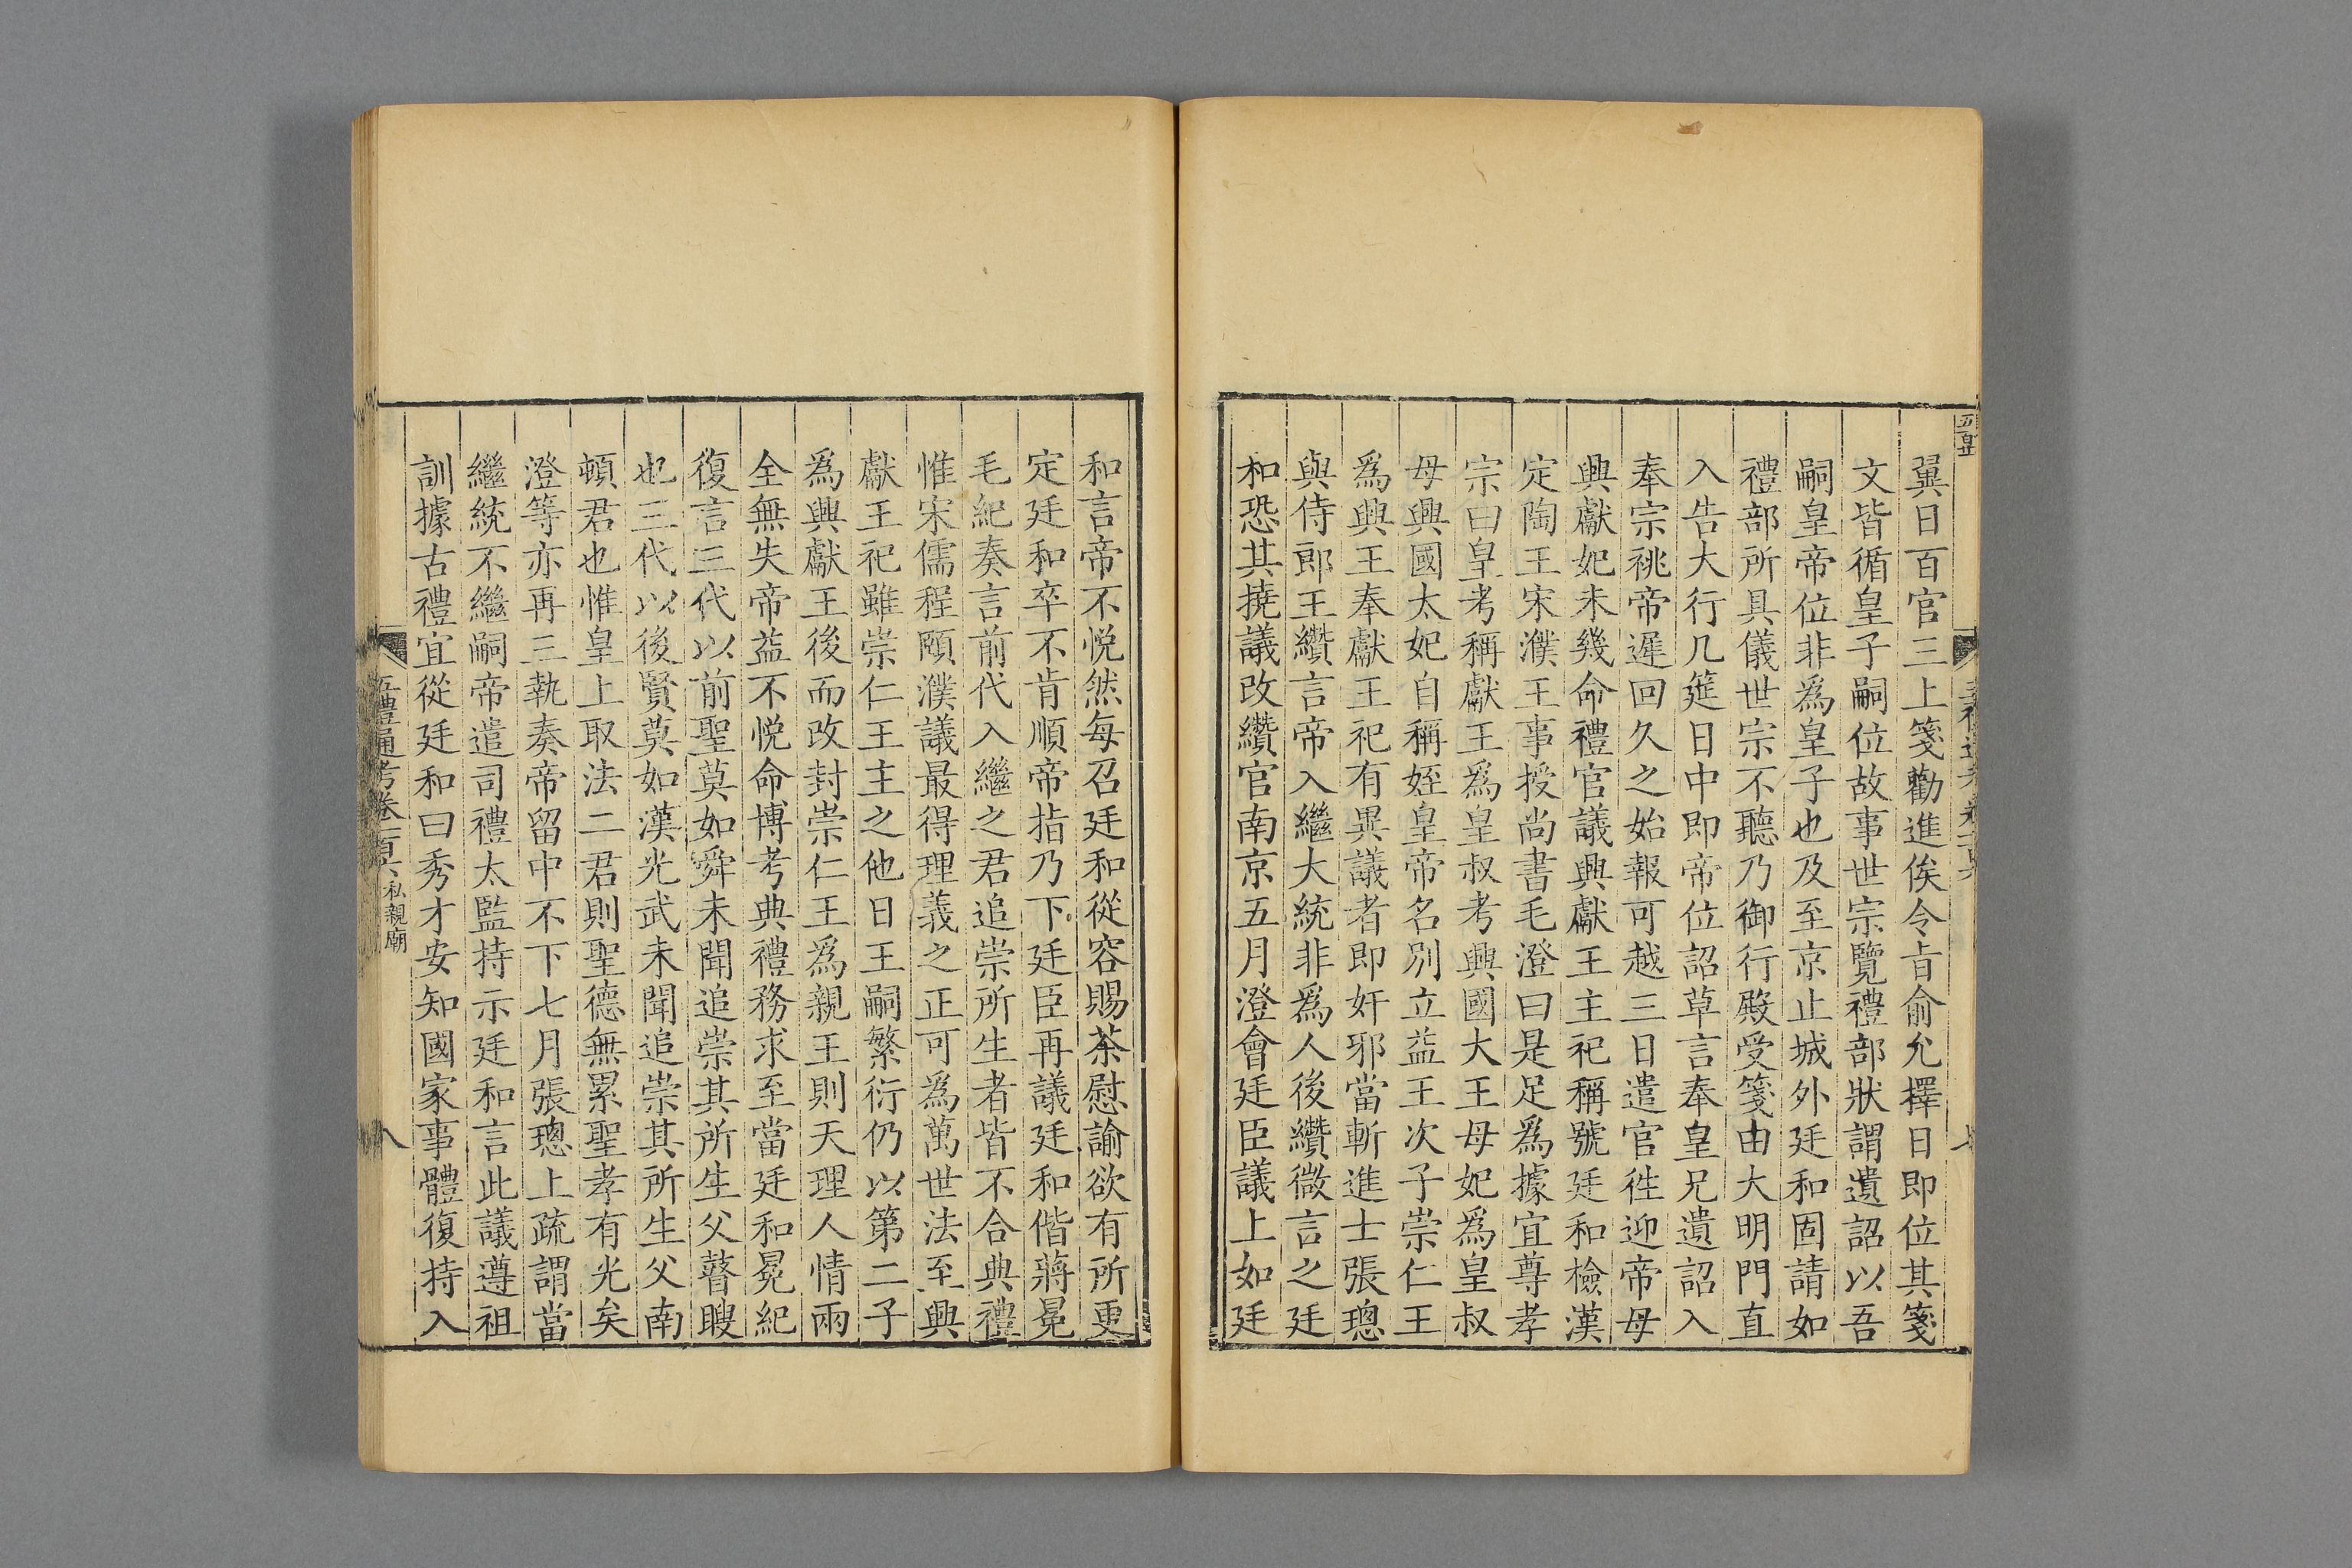 翼日百官三上箋勸進俟令旨俞允擇日即位其箋
文皆循皇子嗣位故事世宗覽禮部狀謂遺詔以吾
嗣皇帝位非為皇子也及至京止城外廷和固請如
禮部所具儀世宗不聽乃御行殿受箋由大明門直
入告大行几筵日中即帝位詔草言奉皇兄遺詔入
奉宗祧帝遲回久之始報可越三日遣官徃迎帝母
興獻妃未幾命禮官議興獻王主祀稱號廷和檢漢
定陶王宋濮王事授尚書毛澄曰是足爲據宜尊孝
宗曰皇考稱獻王爲皇叔考興國大王母妃爲皇叔
母興國太妃自稱姪皇帝名別立益王次子崇仁王
爲興王奉獻王祀有異議者即奸邪當斬進士張璁
與侍郎王纘言帝入繼大統非爲人後纘微言之廷
和恐其撓議改纘官南京五月澄會廷臣議上如廷
和言帝不悅然每召廷和從容賜茶慰諭欲有所更
定廷和卒不肯順帝指乃下廷臣再議廷和偕蔣冕
毛紀奏言前代入繼之君追崇所生者皆不合典禮
惟宋儒程頤濮議最得理義之正可為萬世法至興
獻王祀雖崇仁王主之他日王嗣繁衍仍以第二子
為興獻王後而改封崇仁王為親王則天理人情兩
全無失帝益不悅命博考典禮務求至當廷和冕紀
復言三代以前聖莫如舜未聞追崇其所生父瞽瞍
也三代以後賢莫如漢光武未聞追崇其所生父南
頓君也惟皇上取法二君則聖德無累聖孝有光矣
澄等亦再三執奏帝留中不下七月張璁上疏謂當
繼統不繼嗣帝遣司禮太監持示廷和言此議遵祖
訓據古禮宜從廷和曰秀才安知國家事體復持入
五禮通考卷一百六 私親廟 八